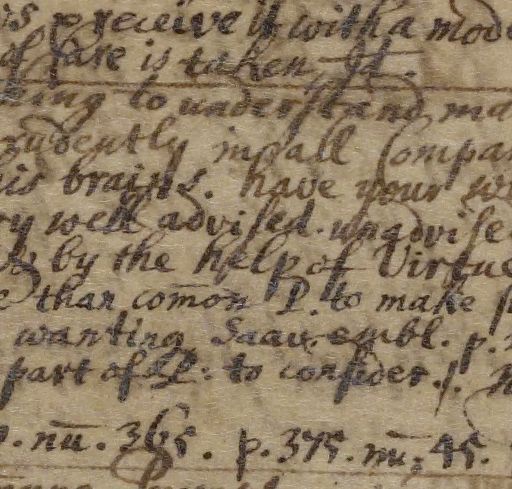 receive it with a mode
of fare is taken. It.
king to understand ma
rudently in all Compan
his brains. have your wi
ry well advised. unadvise
by the help of Virtue
e than com̄on P. to make
wanting Saav. embl. p.
part of P. to consider.
nū. 365. p. 375. nū. 45.